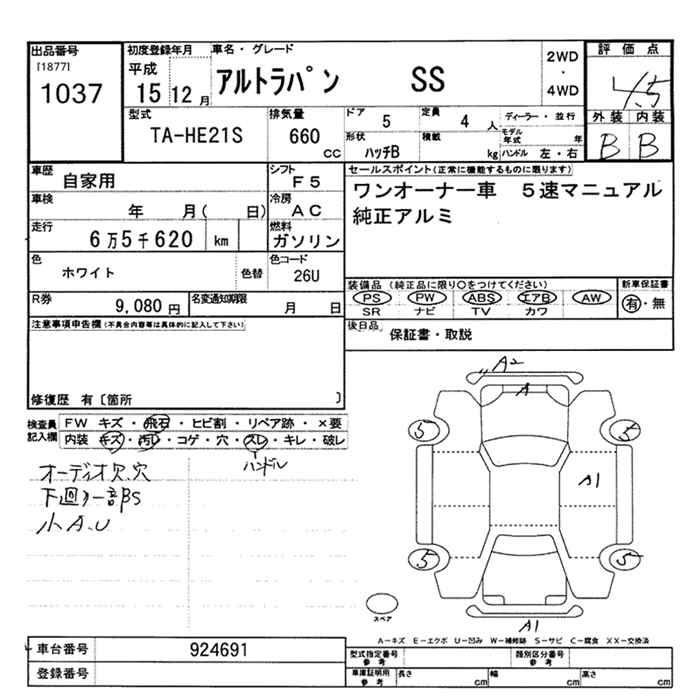 出品番号
[1877]
1037
初度登録年月
平成
15 12 月
車名・グレード
アルトラパン SS
2WD
・
4WD
評価点
4.5
外装 内装
B B
型式
TA-HE21S
排気量
660
CC
ドア
5
定員
4 人
形状
ハッチB
積載
kg
ディーラー・並行
モデル年式 年
ハンドル 左・右
車歴
自家用
シフト
F5
車検
年 月( 日)
冷房
AC
走行
6万5千620 km
燃料
ガソリン
色
ホワイト
色替
色コード
26U
R券
9,080 円
名変通知期限
月 日
セールスポイント(正常に機能するものに限ります)
ワンオーナー車 5速マニュアル
純正アルミ
装備品 (純正品に限り○をつけてください)
PS PW ABS エアB AW
SR ナビ TV カワ
新車保証書
有・無
後日品
保証書・取説
注意事項申告欄(不具合内容等は具体的に記入して下さい)
修復歴 有〔箇所 〕
検査員
記入欄
FW キズ・飛石・ヒビ割・リペア跡・×要
内装 キズ・汚レ・コゲ・穴・スレ・キレ・破レ
ハンドル
オーディオ欠、穴
下回り一部PS
小A、U
A2
A
5
5
A1
5
5
A1
スペア
A－キズ E－エクボ U－凹み W－補修跡 S－サビ C－腐食 XX－交換済
車台番号
924691
登録番号
型式指定番号
参考
類別区分番号
参考
車庫証明用
参考
長さ cm
幅 cm
高さ cm